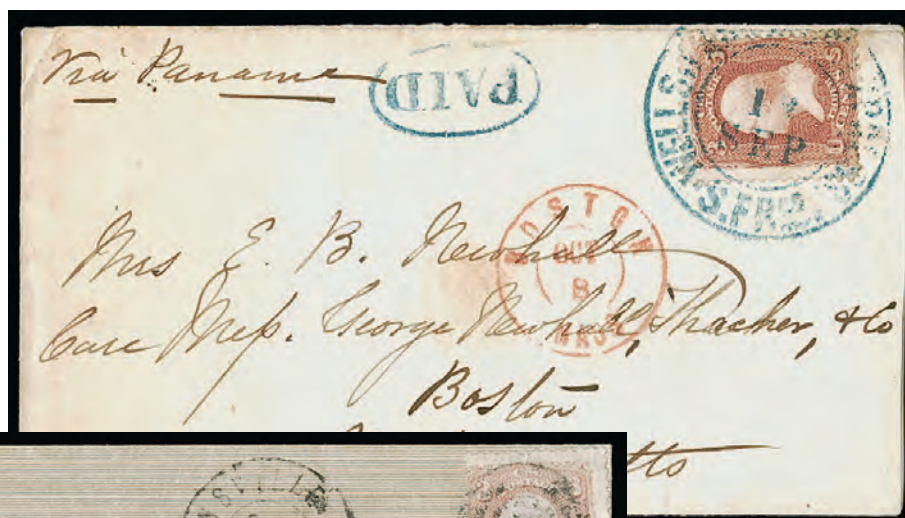 Via Panama
PAID
WELLS,
S. FRCO.
14
SEP
BOSTON
OCT
8
MAS
Mrs E. B. Newhall
Care Mess. George Newhall, Thacher, & Co
Boston
tts
NSVILLE